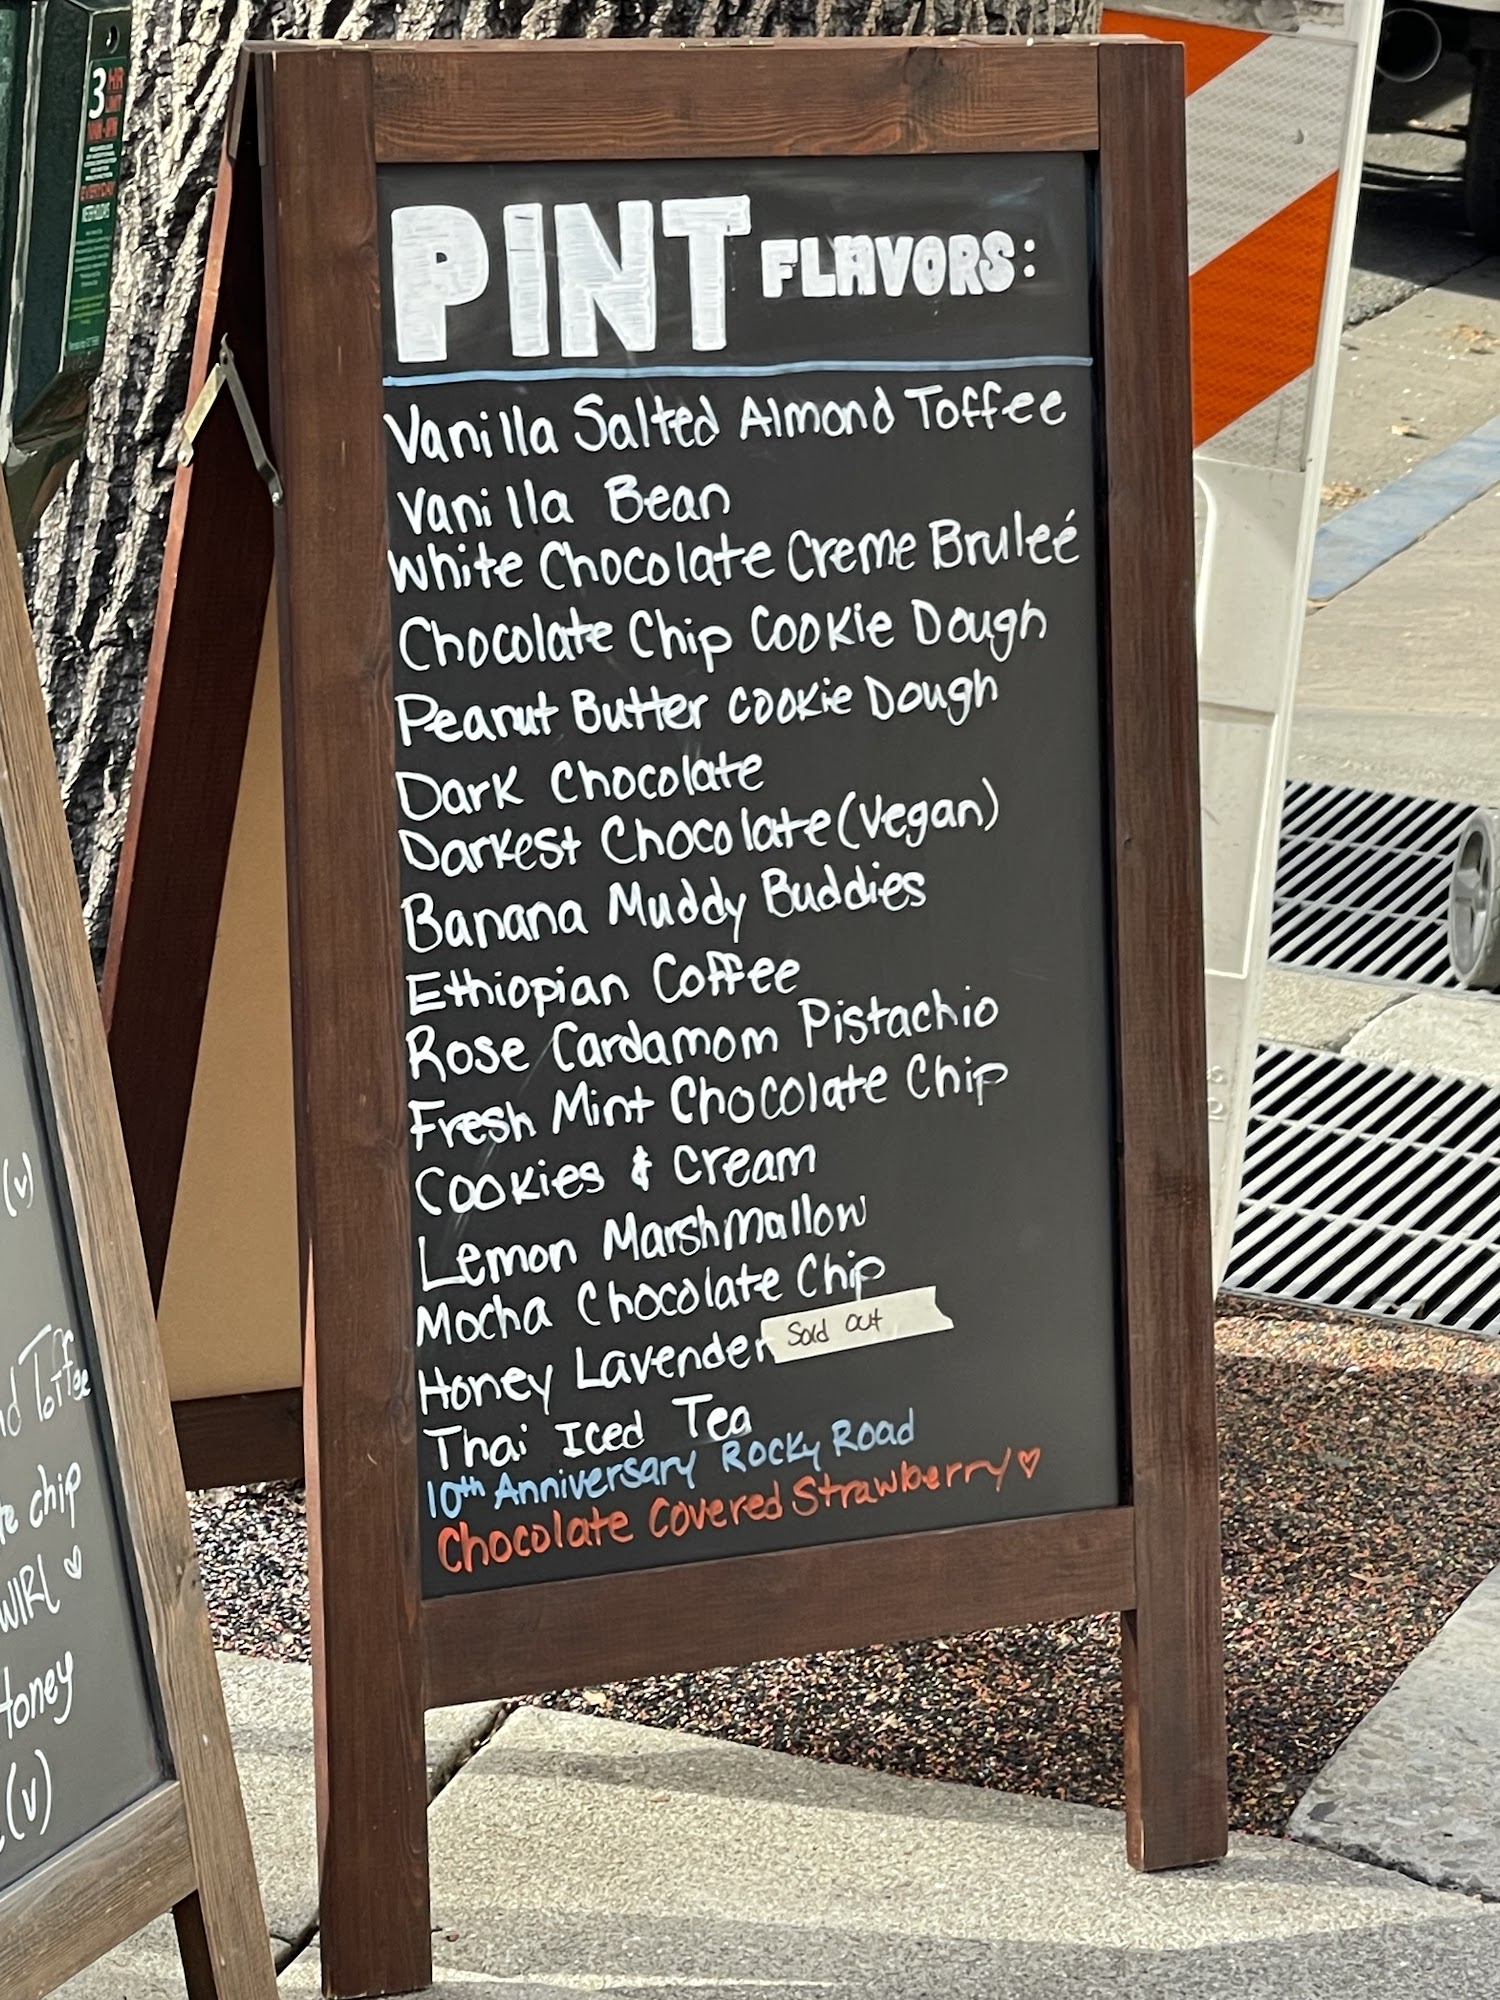 3 HR
EVERYDAY
PINT FLAVORS:
Vanilla Salted Almond Toffee
Vanilla Bean
White Chocolate Creme Bruleé
Chocolate Chip Cookie Dough
Peanut Butter Cookie Dough
Dark Chocolate
Darkest Chocolate (Vegan)
Banana Muddy Buddies
Ethiopian Coffee
Rose Cardamom Pistachio
Fresh Mint Chocolate Chip
Cookies & Cream
Lemon Marshmallow
Mocha Chocolate Chip
Honey Lavender Sold out
Thai Iced Tea
10th Anniversary Rocky Road
Chocolate Covered Strawberry ♡
(v)
Toffee
chip
WIRL ♡
Honey
(v)